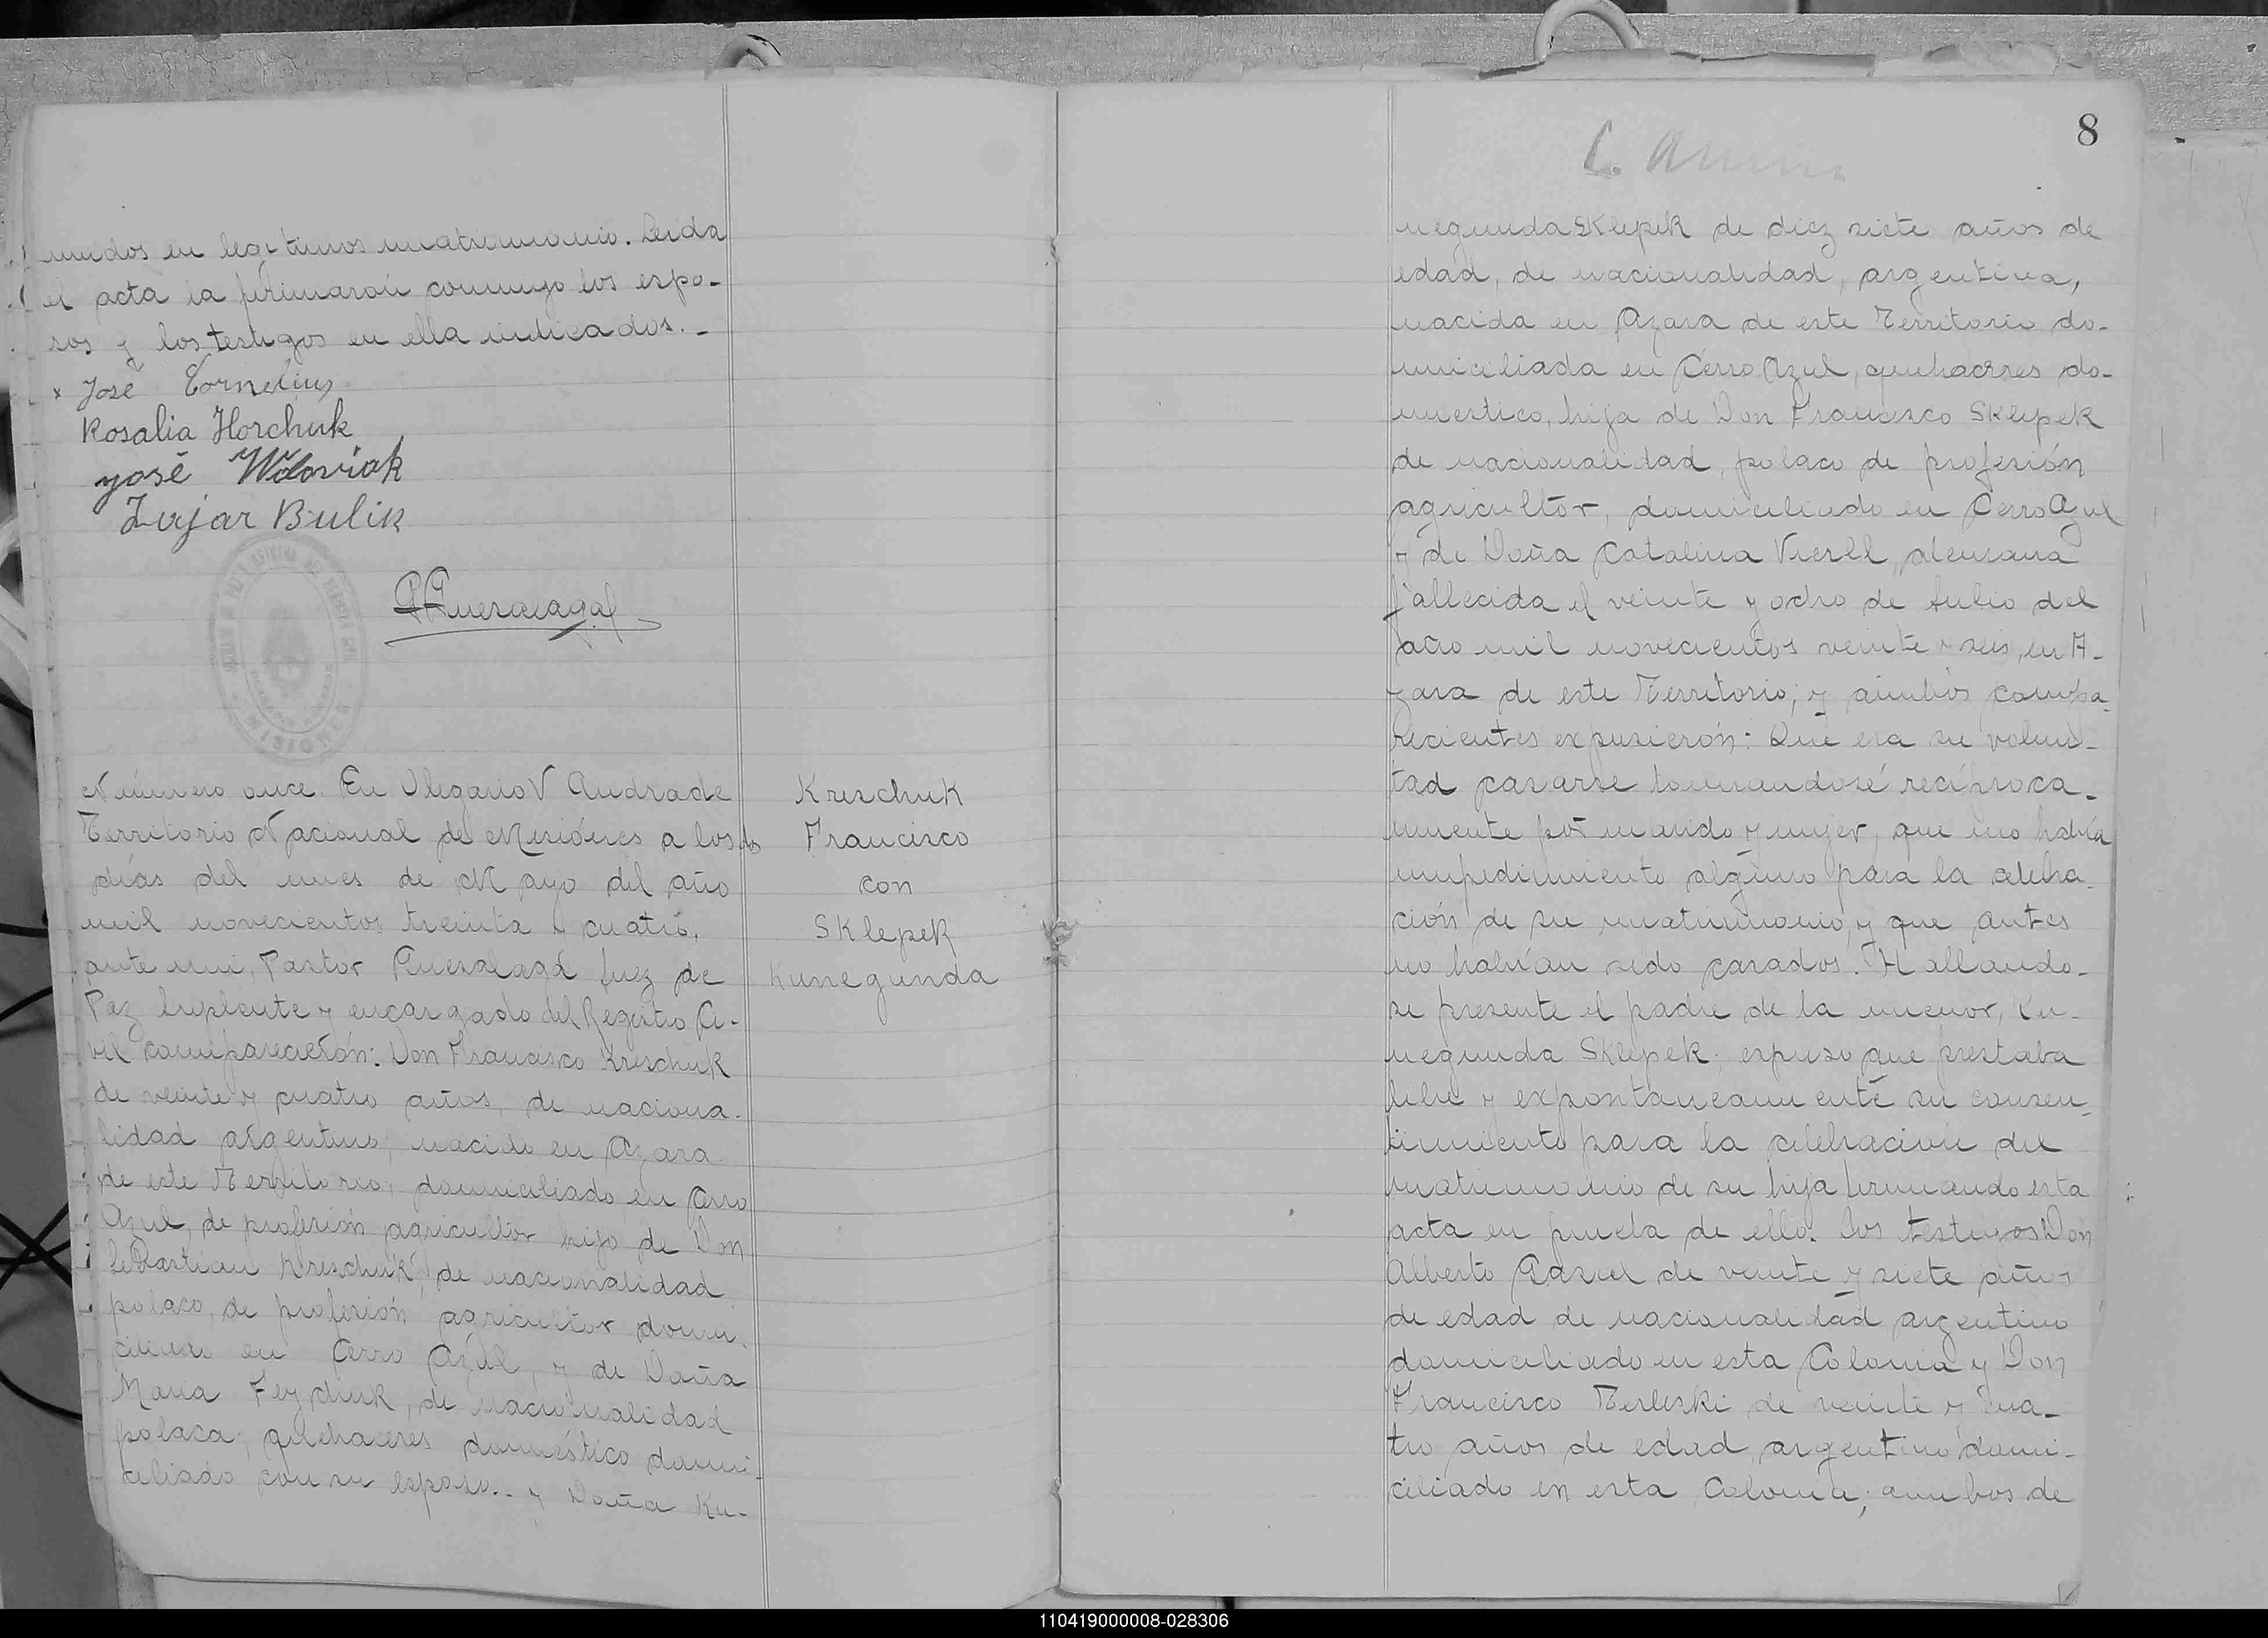 unidos en legitimos matrimonio. Leida
el acta la firmaron conmigo los espo-
sos y los testigos en ella indicados.-
x José Cornelius
Rosalia Horchuk
José
Bulik
MISIONES
Número once. En Olegario V Andrade
Territorio Nacional de Misiónes a los dos
días del mes de Mayo del año
mil novecientos treinta y cuatro,
ante mi, Pastor Juez de
Paz Suplente y encargado del Registro Ci-
vil comparecierón: Don Francisco Kreschuk
de veinte y cuatro años, de naciona-
lidad argentino, nacido en Azara
de este Territorio, domiciliado en Cerro
Azul, de profesión agricultor hijo de Don
Sebastian Kreschuk, de nacionalidad
polaco, de profesión agricultor domi-
ciliado en Cerro Azul, y de Doña
Maria Feychuk, de nacionalidad
polaca, quehaceres doméstico domi-
ciliado con su esposo.- y Doña Ku-
Kreschuk
Francisco
con
Sklepek
Kunegunda
8
negunda Sklepek de diez siete años de
edad, de nacionalidad, argentina,
nacida en Azara de este Territorio do-
miciliada en Cerro Azul, quehacerres do-
mestico, hija de Don Francisco Sklepek
de nacionalidad, polaco de profesión
agricultor, domiciliado en Cerro Azul
y de Doña Catalina alemana
fallecida el veinte y ocho de Julio del
año mil novecientos veinte y seis, en A-
zara de este Territorio; y ambos compa-
recientes expusierón: Que era su volun-
tad casarse tomandosé recíproca-
mente por marido y mujer, que no había
impedimiento alguno para la celebra-
ción de su matrimonio, y que antes
no habían sido casados. Hallando-
se presente el padre de la menor, Ku-
negunda Sklepek, expuso que prestaba
libre y expontaneamente su consen-
timiento para la celebracion del
matrimonio de su hija firmando esta
acta en prueba de ello. Los testigos Don
Alberto de veinte y siete años
de edad de nacionalidad argentino
domiciliado en esta Colonia y Don
Francisco Terleski de veinte y cua-
tro años de edad, argentino domi-
ciliado en esta Colonia; ambos de
110419000008-028306